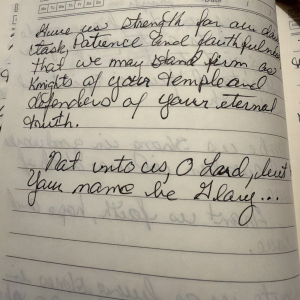 Give us strength for our daily
task, Patience and faithfulness
that we may stand firm as
Knights of your temple and
defenders of your eternal
truth.
Not unto us, O Lord, but
Your name be Glory...